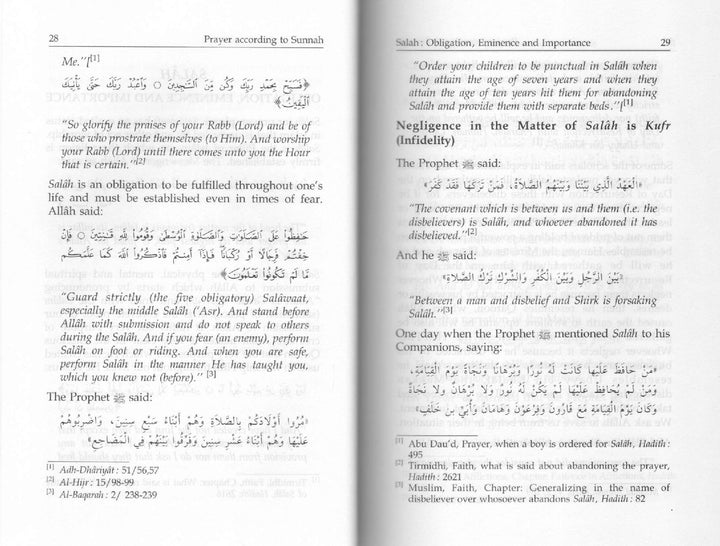 28 Prayer according to Sunnah
Me."[1]
﴿فَسَبِّحْ بِحَمْدِ رَبِّكَ وَكُن مِّنَ السَّاجِدِينَ ۝ وَاعْبُدْ رَبَّكَ حَتَّى يَأْتِيَكَ
الْيَقِينُ﴾
"So glorify the praises of your Rabb (Lord) and be of
those who prostrate themselves (to Him). And worship
your Rabb (Lord) until there comes unto you the Hour
that is certain."[2]
Salâh is an obligation to be fulfilled throughout one's
life and must be established even in times of fear.
Allâh said:
﴿حَافِظُوا عَلَى الصَّلَوَاتِ وَالصَّلَوٰةِ الْوُسْطَى وَقُومُوا لِلَّهِ قَانِتِينَ ۝ فَإِنْ
خِفْتُمْ فَرِجَالًا أَوْ رُكْبَانًا فَإِذَا أَمِنتُمْ فَاذْكُرُوا اللَّهَ كَمَا عَلَّمَكُم
مَّا لَمْ تَكُونُوا تَعْلَمُونَ﴾
"Guard strictly (the five obligatory) Salâwaat,
especially the middle Salâh ('Asr). And stand before
Allâh with submission and do not speak to others
during the Salâh. And if you fear (an enemy), perform
Salâh on foot or riding. And when you are safe,
perform Salâh in the manner He has taught you,
which you knew not (before)." [3]
The Prophet ﷺ said:
«مُرُوا أَوْلَادَكُمْ بِالصَّلَاةِ وَهُمْ أَبْنَاءُ سَبْعِ سِنِينَ، وَاضْرِبُوهُمْ
عَلَيْهَا وَهُمْ أَبْنَاءُ عَشْرِ سِنِينَ وَفَرِّقُوا بَيْنَهُمْ فِي الْمَضَاجِعِ»
[1] Adh-Dhâriyât: 51/56,57
[2] Al-Hijr: 15/98-99
[3] Al-Baqarah: 2/ 238-239
Salah: Obligation, Eminence and Importance 29
"Order your children to be punctual in Salâh when
they attain the age of seven years and when they
attain the age of ten years hit them for abandoning
Salâh and provide them with separate beds."[1]
Negligence in the Matter of Salâh is Kufr
(Infidelity)
The Prophet ﷺ said:
«الْعَهْدُ الَّذِي بَيْنَنَا وَبَيْنَهُمُ الصَّلَاةُ، فَمَنْ تَرَكَهَا فَقَدْ كَفَرَ»
"The covenant which is between us and them (i.e. the
disbelievers) is Salâh, and whoever abandoned it has
disbelieved."[2]
And he ﷺ said:
«بَيْنَ الرَّجُلِ وَبَيْنَ الْكُفْرِ وَالشِّرْكِ تَرْكُ الصَّلَاةِ»
"Between a man and disbelief and Shirk is forsaking
Salâh."[3]
One day when the Prophet ﷺ mentioned Salâh to his
Companions, saying:
«مَنْ حَافَظَ عَلَيْهَا كَانَتْ لَهُ نُورًا وَبُرْهَانًا وَنَجَاةً يَوْمَ الْقِيَامَةِ،
وَمَنْ لَمْ يُحَافِظْ عَلَيْهَا لَمْ يَكُنْ لَهُ نُورٌ وَلَا بُرْهَانٌ وَلَا نَجَاةٌ
وَكَانَ يَوْمَ الْقِيَامَةِ مَعَ قَارُونَ وَفِرْعَوْنَ وَهَامَانَ وَأُبَيِّ بْنِ خَلَفٍ»
[1] Abu Dau'd, Prayer, when a boy is ordered for Salâh, Hadith:
495
[2] Tirmidhi, Faith, what is said about abandoning the prayer,
Hadith: 2621
[3] Muslim, Faith, Chapter: Generalizing in the name of
disbeliever over whosoever abandons Salâh, Hadith: 82